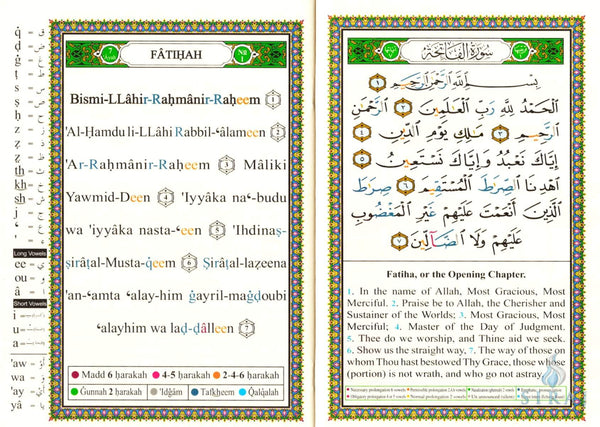 7
Ayât
FÂTIḤAH
NR
1
Bismi-LLâhir-Raḥmânir-Raḥeem 1
'Al-Ḥamdu li-LLâhi Rabbil-ʿâlameen 2
'Ar-Raḥmânir-Raḥeem 3 Mâliki
Yawmid-Deen 4 'Iyyâka naʿ-budu
wa 'iyyâka nasta-ʿeen 5 'Ihdinaṣ-
ṣirâṭal-Musta-q̇eem 6 Ṣirâṭal-laẓeena
'an-ʿamta ʿalay-him ġayril-maġḍoubi
ʿalayhim wa laḍ-ḍâlleen 7
Madd 6 ḥarakah
4-5 ḥarakah
2-4-6 ḥarakah
Ġunnah 2 ḥarakah
'Idġâm
Tafkheem
Q̇alq̇alah
q̇
ḍ
ġ
ṭ
ṣ
ḥ
z
ẓ
th
kh
sh
j
r
ʿ
'
Long Vowels
ee
ou
â
Short Vowels
i
u
a
'aw
wa
'ay
yâ
سُورَةُ الْفَاتِحَةِ
بِسْمِ اللَّهِ الرَّحْمَٰنِ الرَّحِيمِ ١
الْحَمْدُ لِلَّهِ رَبِّ الْعَالَمِينَ ٢ الرَّحْمَٰنِ
الرَّحِيمِ ٣ مَالِكِ يَوْمِ الدِّينِ ٤
إِيَّاكَ نَعْبُدُ وَإِيَّاكَ نَسْتَعِينُ ٥
اهْدِنَا الصِّرَاطَ الْمُسْتَقِيمَ ٦ صِرَاطَ
الَّذِينَ أَنْعَمْتَ عَلَيْهِمْ غَيْرِ الْمَغْضُوبِ
عَلَيْهِمْ وَلَا الضَّالِّينَ ٧
Fatiha, or the Opening Chapter.
1. In the name of Allah, Most Gracious, Most
Merciful. 2. Praise be to Allah, the Cherisher and
Sustainer of the Worlds; 3. Most Gracious, Most
Merciful; 4. Master of the Day of Judgment.
5. Thee do we worship, and Thine aid we seek.
6. Show us the straight way, 7. The way of those on
whom Thou hast bestowed Thy Grace, those whose
(portion) is not wrath, and who go not astray.